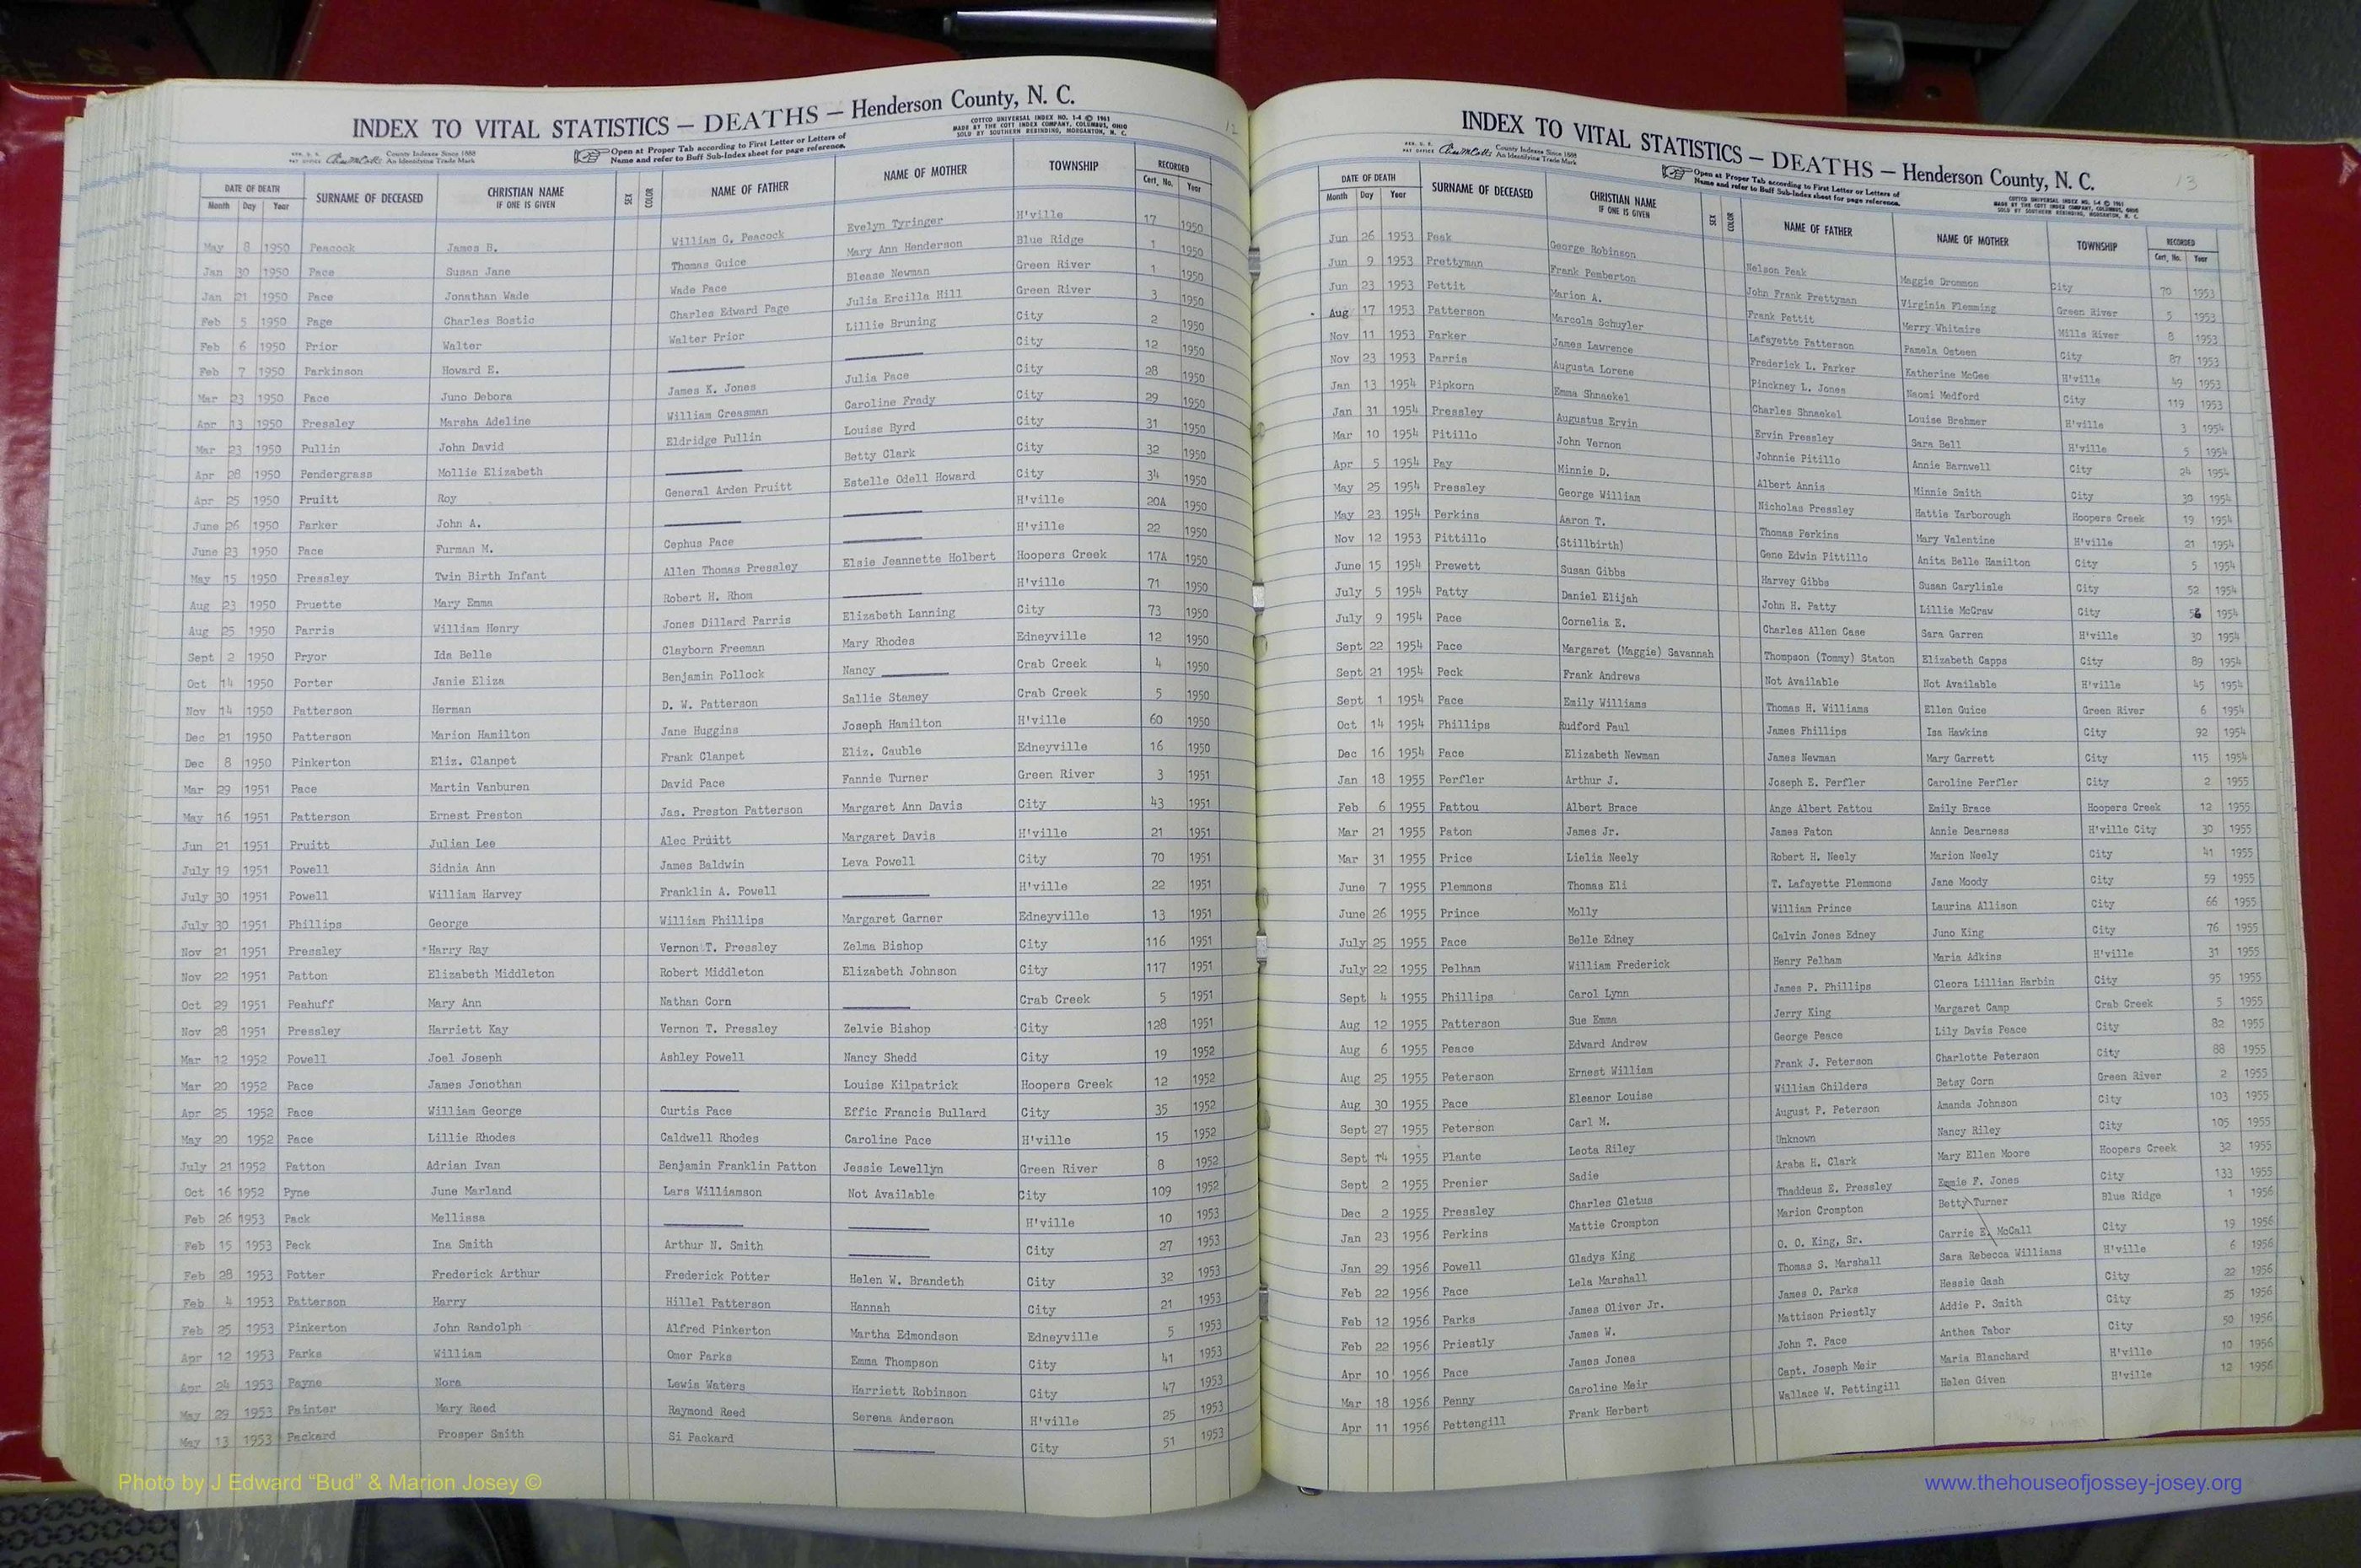 INDEX TO VITAL STATISTICS — DEATHS — Henderson County, N. C.
COTTCO UNIVERSAL INDEX NO. 1-4 © 1961
MADE BY THE COTT INDEX COMPANY, COLUMBUS, OHIO
SOLD BY SOUTHERN REBINDING, MORGANTON, N. C.
12
County Indexes Since 1888
An Identifying Trade Mark
Open at Proper Tab according to First Letter or Letters of
Name and refer to Buff Sub-Index sheet for page reference.
DATE OF DEATH SURNAME OF DECEASED CHRISTIAN NAME IF ONE IS GIVEN SEX COLOR NAME OF FATHER NAME OF MOTHER TOWNSHIP RECORDED
Month Day Year Cert. No. Year
May 8 1950 Peacock James B. William G. Peacock Evelyn Tyringer H'ville 17 1950
Jan 30 1950 Pace Susan Jane Thomas Guice Mary Ann Henderson Blue Ridge 1 1950
Jan 21 1950 Pace Jonathan Wade Wade Pace Blease Newman Green River 1 1950
Feb 5 1950 Page Charles Bostic Charles Edward Page Julia Ercilla Hill Green River 3 1950
Feb 6 1950 Prior Walter Walter Prior Lillie Bruning City 2 1950
Feb 7 1950 Parkinson Howard E. City 12 1950
Mar 23 1950 Pace Juno Debora James K. Jones Julia Pace City 28 1950
Apr 13 1950 Pressley Marsha Adeline William Creasman Caroline Frady City 29 1950
Mar 23 1950 Pullin John David Eldridge Pullin Louise Byrd City 31 1950
Apr 28 1950 Pendergrass Mollie Elizabeth Betty Clark City 32 1950
Apr 25 1950 Pruitt Roy General Arden Pruitt Estelle Odell Howard City 34 1950
June 26 1950 Parker John A. H'ville 20A 1950
June 23 1950 Pace Furman M. Cephus Pace H'ville 22 1950
May 15 1950 Pressley Twin Birth Infant Allen Thomas Pressley Elsie Jeannette Holbert Hoopers Creek 17A 1950
Aug 23 1950 Pruette Mary Emma Robert H. Rhom H'ville 71 1950
Aug 25 1950 Parris William Henry Jones Dillard Parris Elizabeth Lanning City 73 1950
Sept 2 1950 Pryor Ida Belle Clayborn Freeman Mary Rhodes Edneyville 12 1950
Oct 14 1950 Porter Janie Eliza Benjamin Pollock Nancy Crab Creek 4 1950
Nov 14 1950 Patterson Herman D. W. Patterson Sallie Stamey Crab Creek 5 1950
Dec 21 1950 Patterson Marion Hamilton Jane Huggins Joseph Hamilton H'ville 60 1950
Dec 8 1950 Pinkerton Eliz. Clanpet Frank Clanpet Eliz. Cauble Edneyville 16 1950
Mar 29 1951 Pace Martin Vanburen David Pace Fannie Turner Green River 3 1951
May 16 1951 Patterson Ernest Preston Jas. Preston Patterson Margaret Ann Davis City 43 1951
Jun 21 1951 Pruitt Julian Lee Alec Pruitt Margaret Davis H'ville 21 1951
July 19 1951 Powell Sidnia Ann James Baldwin Leva Powell City 70 1951
July 30 1951 Powell William Harvey Franklin A. Powell H'ville 22 1951
July 30 1951 Phillips George William Phillips Margaret Garner Edneyville 13 1951
Nov 21 1951 Pressley Harry Ray Vernon T. Pressley Zelma Bishop City 116 1951
Nov 22 1951 Patton Elizabeth Middleton Robert Middleton Elizabeth Johnson City 117 1951
Oct 29 1951 Peahuff Mary Ann Nathan Corn Crab Creek 5 1951
Nov 28 1951 Pressley Harriett Kay Vernon T. Pressley Zelvie Bishop City 128 1951
Mar 12 1952 Powell Joel Joseph Ashley Powell Nancy Shedd City 19 1952
Mar 20 1952 Pace James Jonothan Louise Kilpatrick Hoopers Creek 12 1952
Apr 25 1952 Pace William George Curtis Pace Effic Francis Bullard City 35 1952
May 20 1952 Pace Lillie Rhodes Caldwell Rhodes Caroline Pace H'ville 15 1952
July 21 1952 Patton Adrian Ivan Benjamin Franklin Patton Jessie Lewellyn Green River 8 1952
Oct 16 1952 Pyne June Marland Lars Williamson Not Available City 109 1952
Feb 26 1953 Pack Mellissa H'ville 10 1953
Feb 15 1953 Peck Ina Smith Arthur N. Smith City 27 1953
Feb 28 1953 Potter Frederick Arthur Frederick Potter Helen W. Brandeth City 32 1953
Feb 4 1953 Patterson Harry Hillel Patterson Hannah City 21 1953
Feb 25 1953 Pinkerton John Randolph Alfred Pinkerton Martha Edmondson Edneyville 5 1953
Apr 12 1953 Parks William Omer Parks Emma Thompson City 41 1953
Apr 24 1953 Payne Nora Lewis Waters Harriett Robinson City 47 1953
May 29 1953 Painter Mary Reed Raymond Reed Serena Anderson H'ville 25 1953
May 13 1953 Packard Prosper Smith Si Packard City 51 1953
INDEX TO VITAL STATISTICS — DEATHS — Henderson County, N. C.
13
County Indexes Since 1888
An Identifying Trade Mark
Open at Proper Tab according to First Letter or Letters of
Name and refer to Buff Sub-Index sheet for page reference.
COTTCO UNIVERSAL INDEX NO. 1-4 © 1961
MADE BY THE COTT INDEX COMPANY, COLUMBUS, OHIO
SOLD BY SOUTHERN REBINDING, MORGANTON, N. C.
DATE OF DEATH SURNAME OF DECEASED CHRISTIAN NAME IF ONE IS GIVEN SEX COLOR NAME OF FATHER NAME OF MOTHER TOWNSHIP RECORDED
Month Day Year Cert. No. Year
Jun 26 1953 Peak George Robinson Nelson Peak Maggie Drommon City 70 1953
Jun 9 1953 Prettyman Frank Pemberton John Frank Prettyman Virginia Flemming Green River 5 1953
Jun 23 1953 Pettit Marion A. Frank Pettit Merry Whitmire Mills River 8 1953
Aug 17 1953 Patterson Marcolm Schuyler Lafayette Patterson Pamela Osteen City 87 1953
Nov 11 1953 Parker James Lawrence Frederick L. Parker Katherine McGee H'ville 49 1953
Nov 23 1953 Parris Augusta Lorene Pinckney L. Jones Naomi Medford City 119 1953
Jan 13 1954 Pipkorn Emma Shnaekel Charles Shnaekel Louise Brehmer H'ville 3 1954
Jan 31 1954 Pressley Augustus Ervin Ervin Pressley Sara Bell H'ville 5 1954
Mar 10 1954 Pitillo John Vernon Johnnie Pitillo Annie Barnwell City 24 1954
Apr 5 1954 Pay Minnie D. Albert Annis Minnie Smith City 30 1954
May 25 1954 Pressley George William Nicholas Pressley Hattie Yarborough Hoopers Creek 19 1954
May 23 1954 Perkins Aaron T. Thomas Perkins Mary Valentine H'ville 21 1954
Nov 12 1953 Pittillo (Stillbirth) Gene Edwin Pittillo Anita Belle Hamilton City 5 1954
June 15 1954 Prewett Susan Gibbs Harvey Gibbs Susan Carylisle City 52 1954
July 5 1954 Patty Daniel Elijah John H. Patty Lillie McCraw City 58 1954
July 9 1954 Pace Cornelia E. Charles Allen Case Sara Garren H'ville 30 1954
Sept 22 1954 Pace Margaret (Maggie) Savannah Thompson (Tommy) Staton Elizabeth Capps City 89 1954
Sept 21 1954 Peck Frank Andrews Not Available Not Available H'ville 45 1954
Sept 1 1954 Pace Emily Williams Thomas H. Williams Ellen Guice Green River 6 1954
Oct 14 1954 Phillips Rudford Paul James Phillips Isa Hawkins City 92 1954
Dec 16 1954 Pace Elizabeth Newman James Newman Mary Garrett City 115 1954
Jan 18 1955 Perfler Arthur J. Joseph E. Perfler Caroline Perfler City 2 1955
Feb 6 1955 Pattou Albert Brace Ange Albert Pattou Emily Brace Hoopers Creek 12 1955
Mar 21 1955 Paton James Jr. James Paton Annie Dearness H'ville City 30 1955
Mar 31 1955 Price Lielia Neely Robert H. Neely Marion Neely City 41 1955
June 7 1955 Plemmons Thomas Eli T. Lafayette Plemmons Jane Moody City 59 1955
June 26 1955 Prince Molly William Prince Laurina Allison City 66 1955
July 25 1955 Pace Belle Edney Calvin Jones Edney Juno King City 76 1955
July 22 1955 Pelham William Frederick Henry Pelham Maria Adkins H'ville 31 1955
Sept 4 1955 Phillips Carol Lynn James P. Phillips Cleora Lillian Harbin City 95 1955
Aug 12 1955 Patterson Sue Emma Jerry King Margaret Camp Crab Creek 5 1955
Aug 6 1955 Peace Edward Andrew George Peace Lily Davis Peace City 82 1955
Aug 25 1955 Peterson Ernest William Frank J. Peterson Charlotte Peterson City 88 1955
Aug 30 1955 Pace Eleanor Louise William Childers Betsy Corn Green River 2 1955
Sept 27 1955 Peterson Carl M. August P. Peterson Amanda Johnson City 103 1955
Sept 14 1955 Plante Leota Riley Unknown Nancy Riley City 105 1955
Sept 2 1955 Prenier Sadie Araba H. Clark Mary Ellen Moore Hoopers Creek 32 1955
Dec 2 1955 Pressley Charles Cletus Thaddeus E. Pressley Emmie F. Jones City 133 1955
Jan 23 1956 Perkins Mattie Crompton Marion Crompton Betty Turner Blue Ridge 1 1956
Jan 29 1956 Powell Gladys King O. O. King, Sr. Carrie E. McCall City 19 1956
Feb 22 1956 Pace Lela Marshall Thomas S. Marshall Sara Rebecca Williams H'ville 6 1956
Feb 12 1956 Parks James Oliver Jr. James O. Parks Hessie Gash City 22 1956
Feb 22 1956 Priestly James W. Mattison Priestly Addie P. Smith City 25 1956
Apr 10 1956 Pace James Jones John T. Pace Anthea Tabor City 50 1956
Mar 18 1956 Penny Caroline Meir Capt. Joseph Meir Maria Blanchard H'ville 10 1956
Apr 11 1956 Pettengill Frank Herbert Wallace W. Pettingill Helen Given H'ville 12 1956
Photo by J Edward “Bud” & Marion Josey ©
www.thehouseofjossey-josey.org